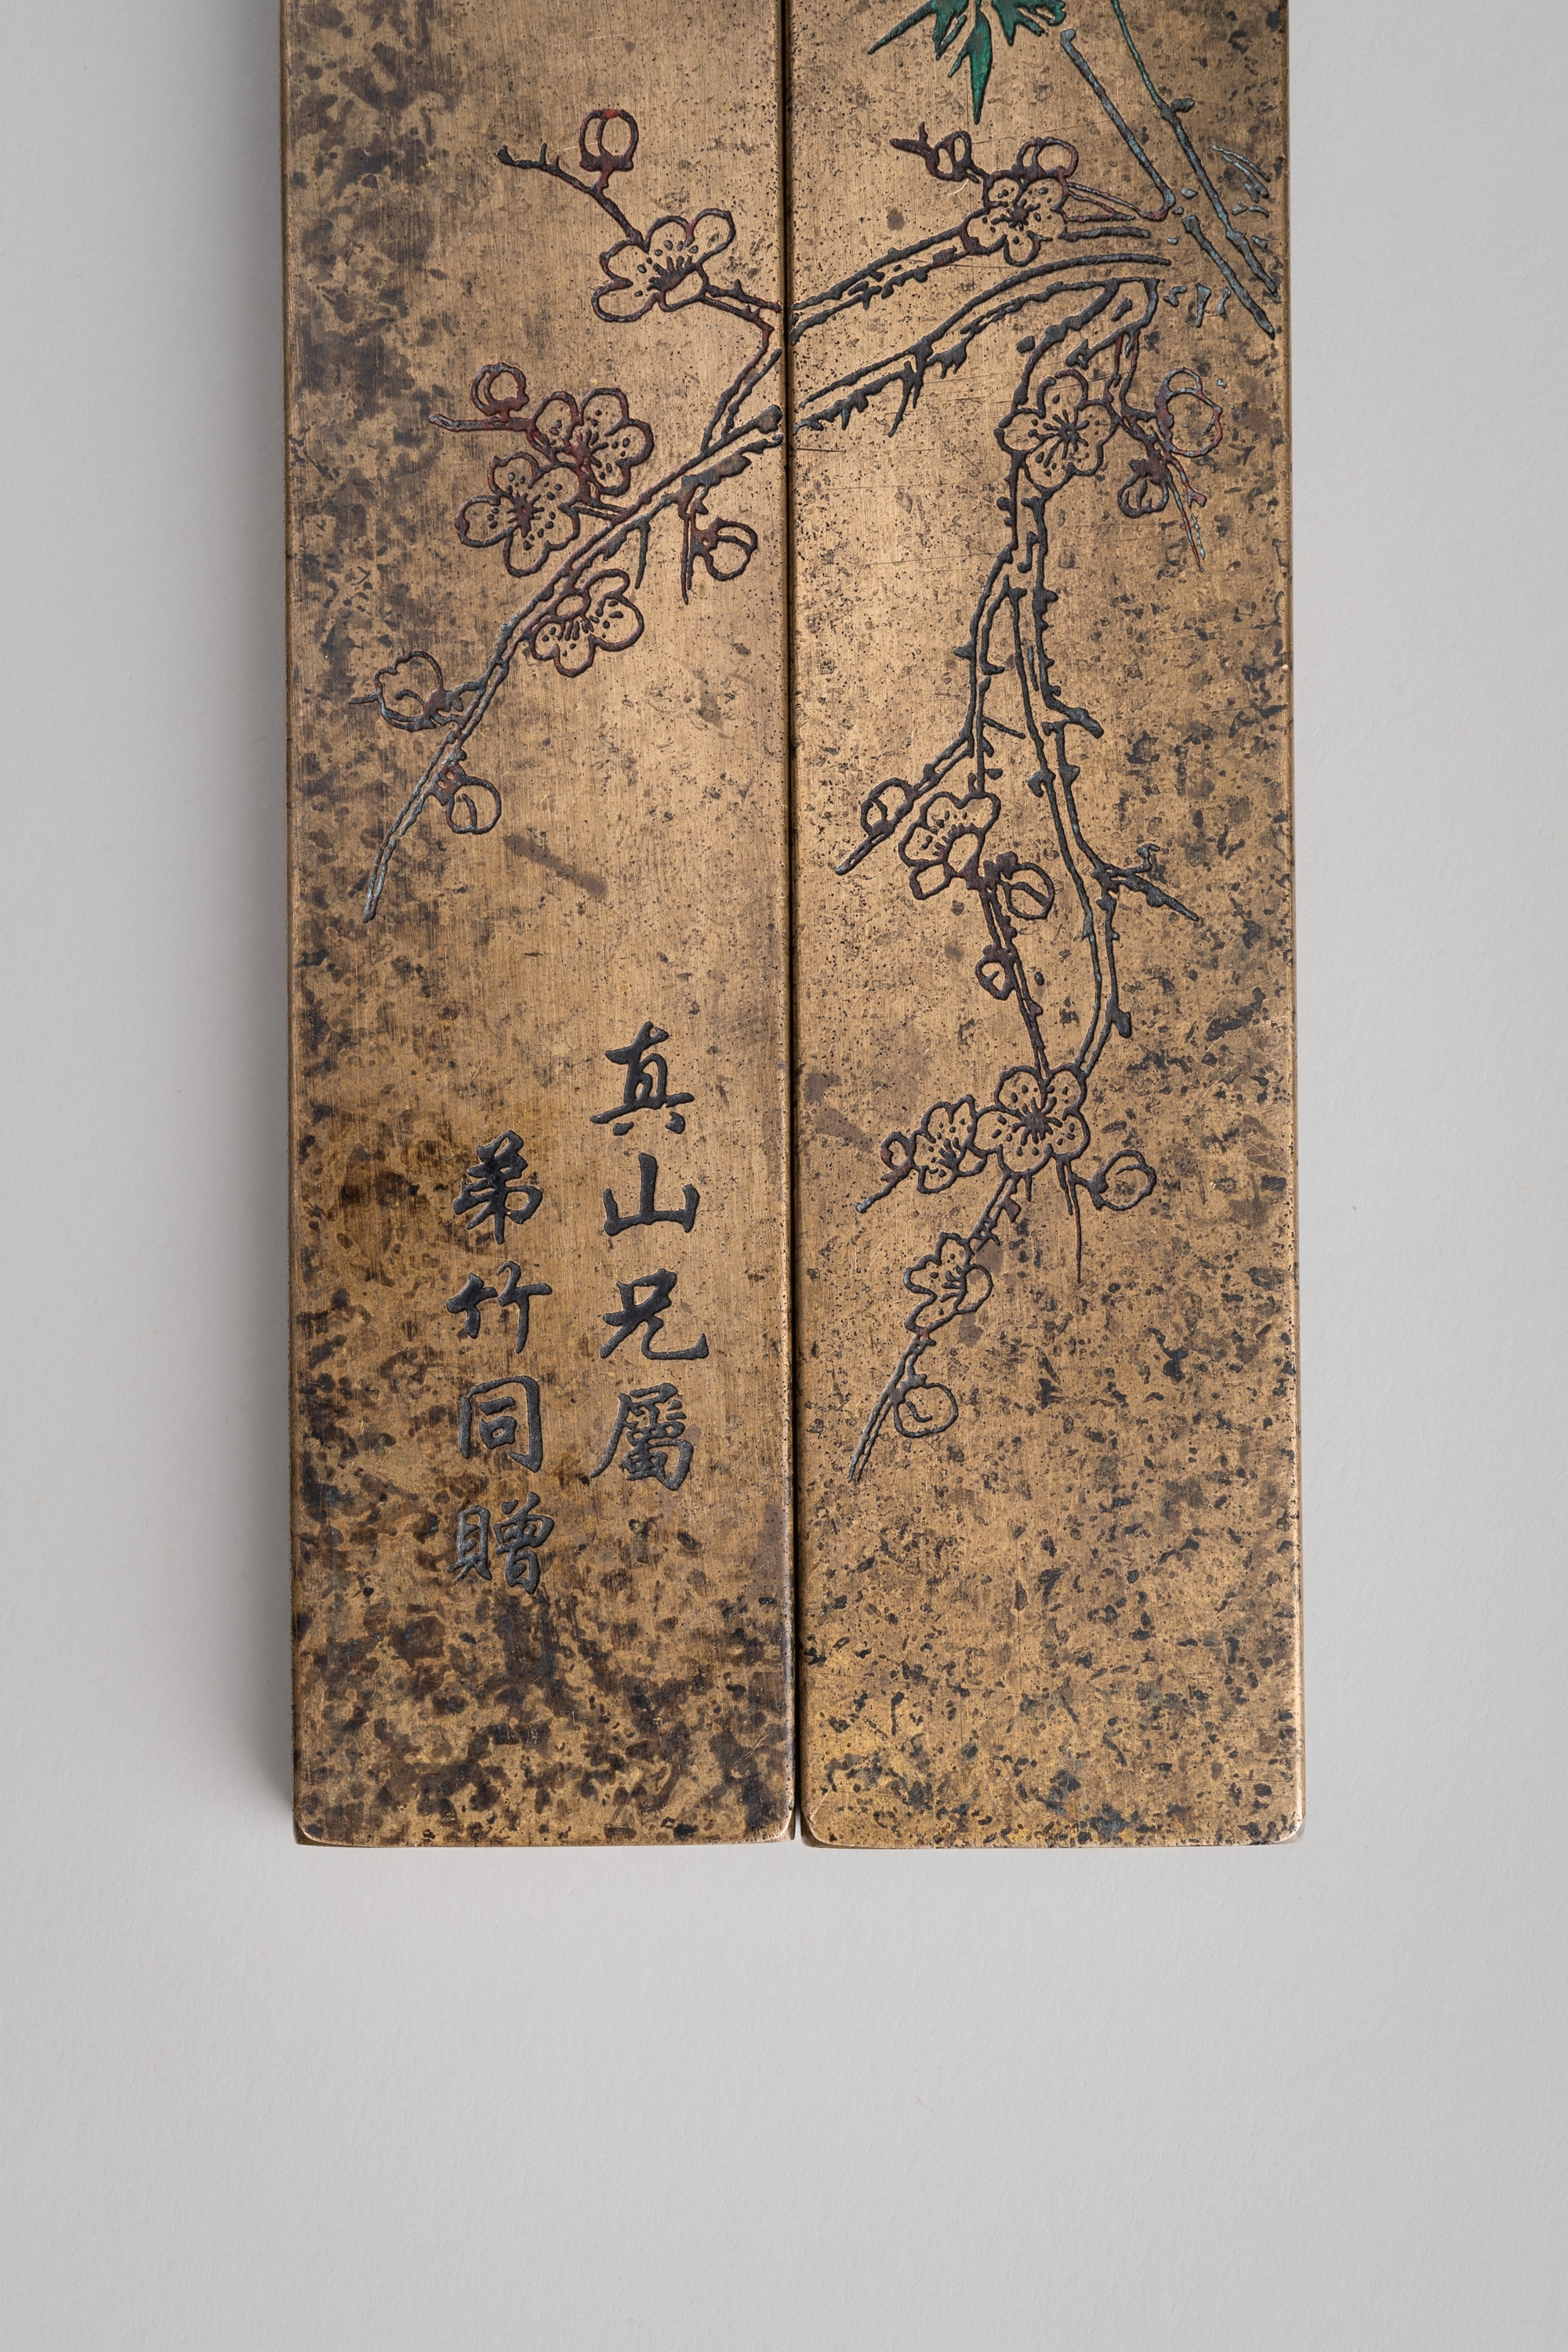 真山兄屬
弟竹同贈